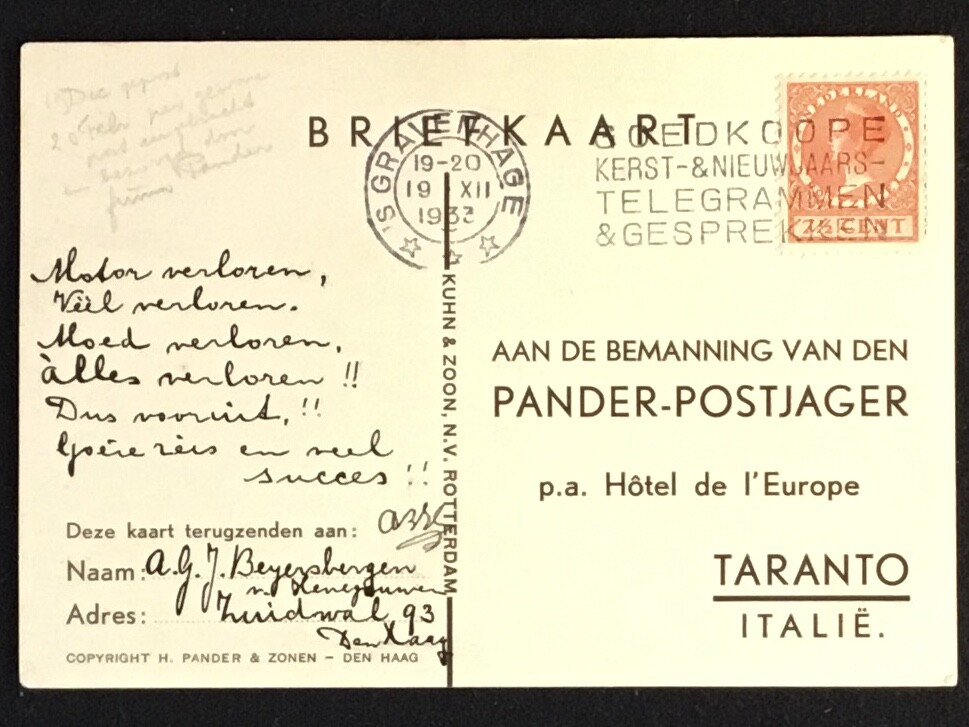 Dec
20 Febr per gewone
post
door
firma Pander
BRIEFKAART
'S GRAVENHAGE
19-20
19 XII
1933
GOEDKOOPE
KERST-&NIEUWJAARS-
TELEGRAMMEN
&GESPREKKEN
NEDERLAND
7½ CENT
Motor verloren,
Véél verloren.
Moed verloren,
àlles verloren !!
Dus vooruit, !!
Goeie reis en veel
succes !!
Deze kaart terugzenden aan:
Naam: A. G. J. Beyersbergen
v. Henegouwen
Adres: Zuidwal 93
Den Haag
COPYRIGHT H. PANDER & ZONEN – DEN HAAG
KUHN & ZOON, N.V. ROTTERDAM
AAN DE BEMANNING VAN DEN
PANDER-POSTJAGER
p.a. Hôtel de l'Europe
TARANTO
ITALIË.